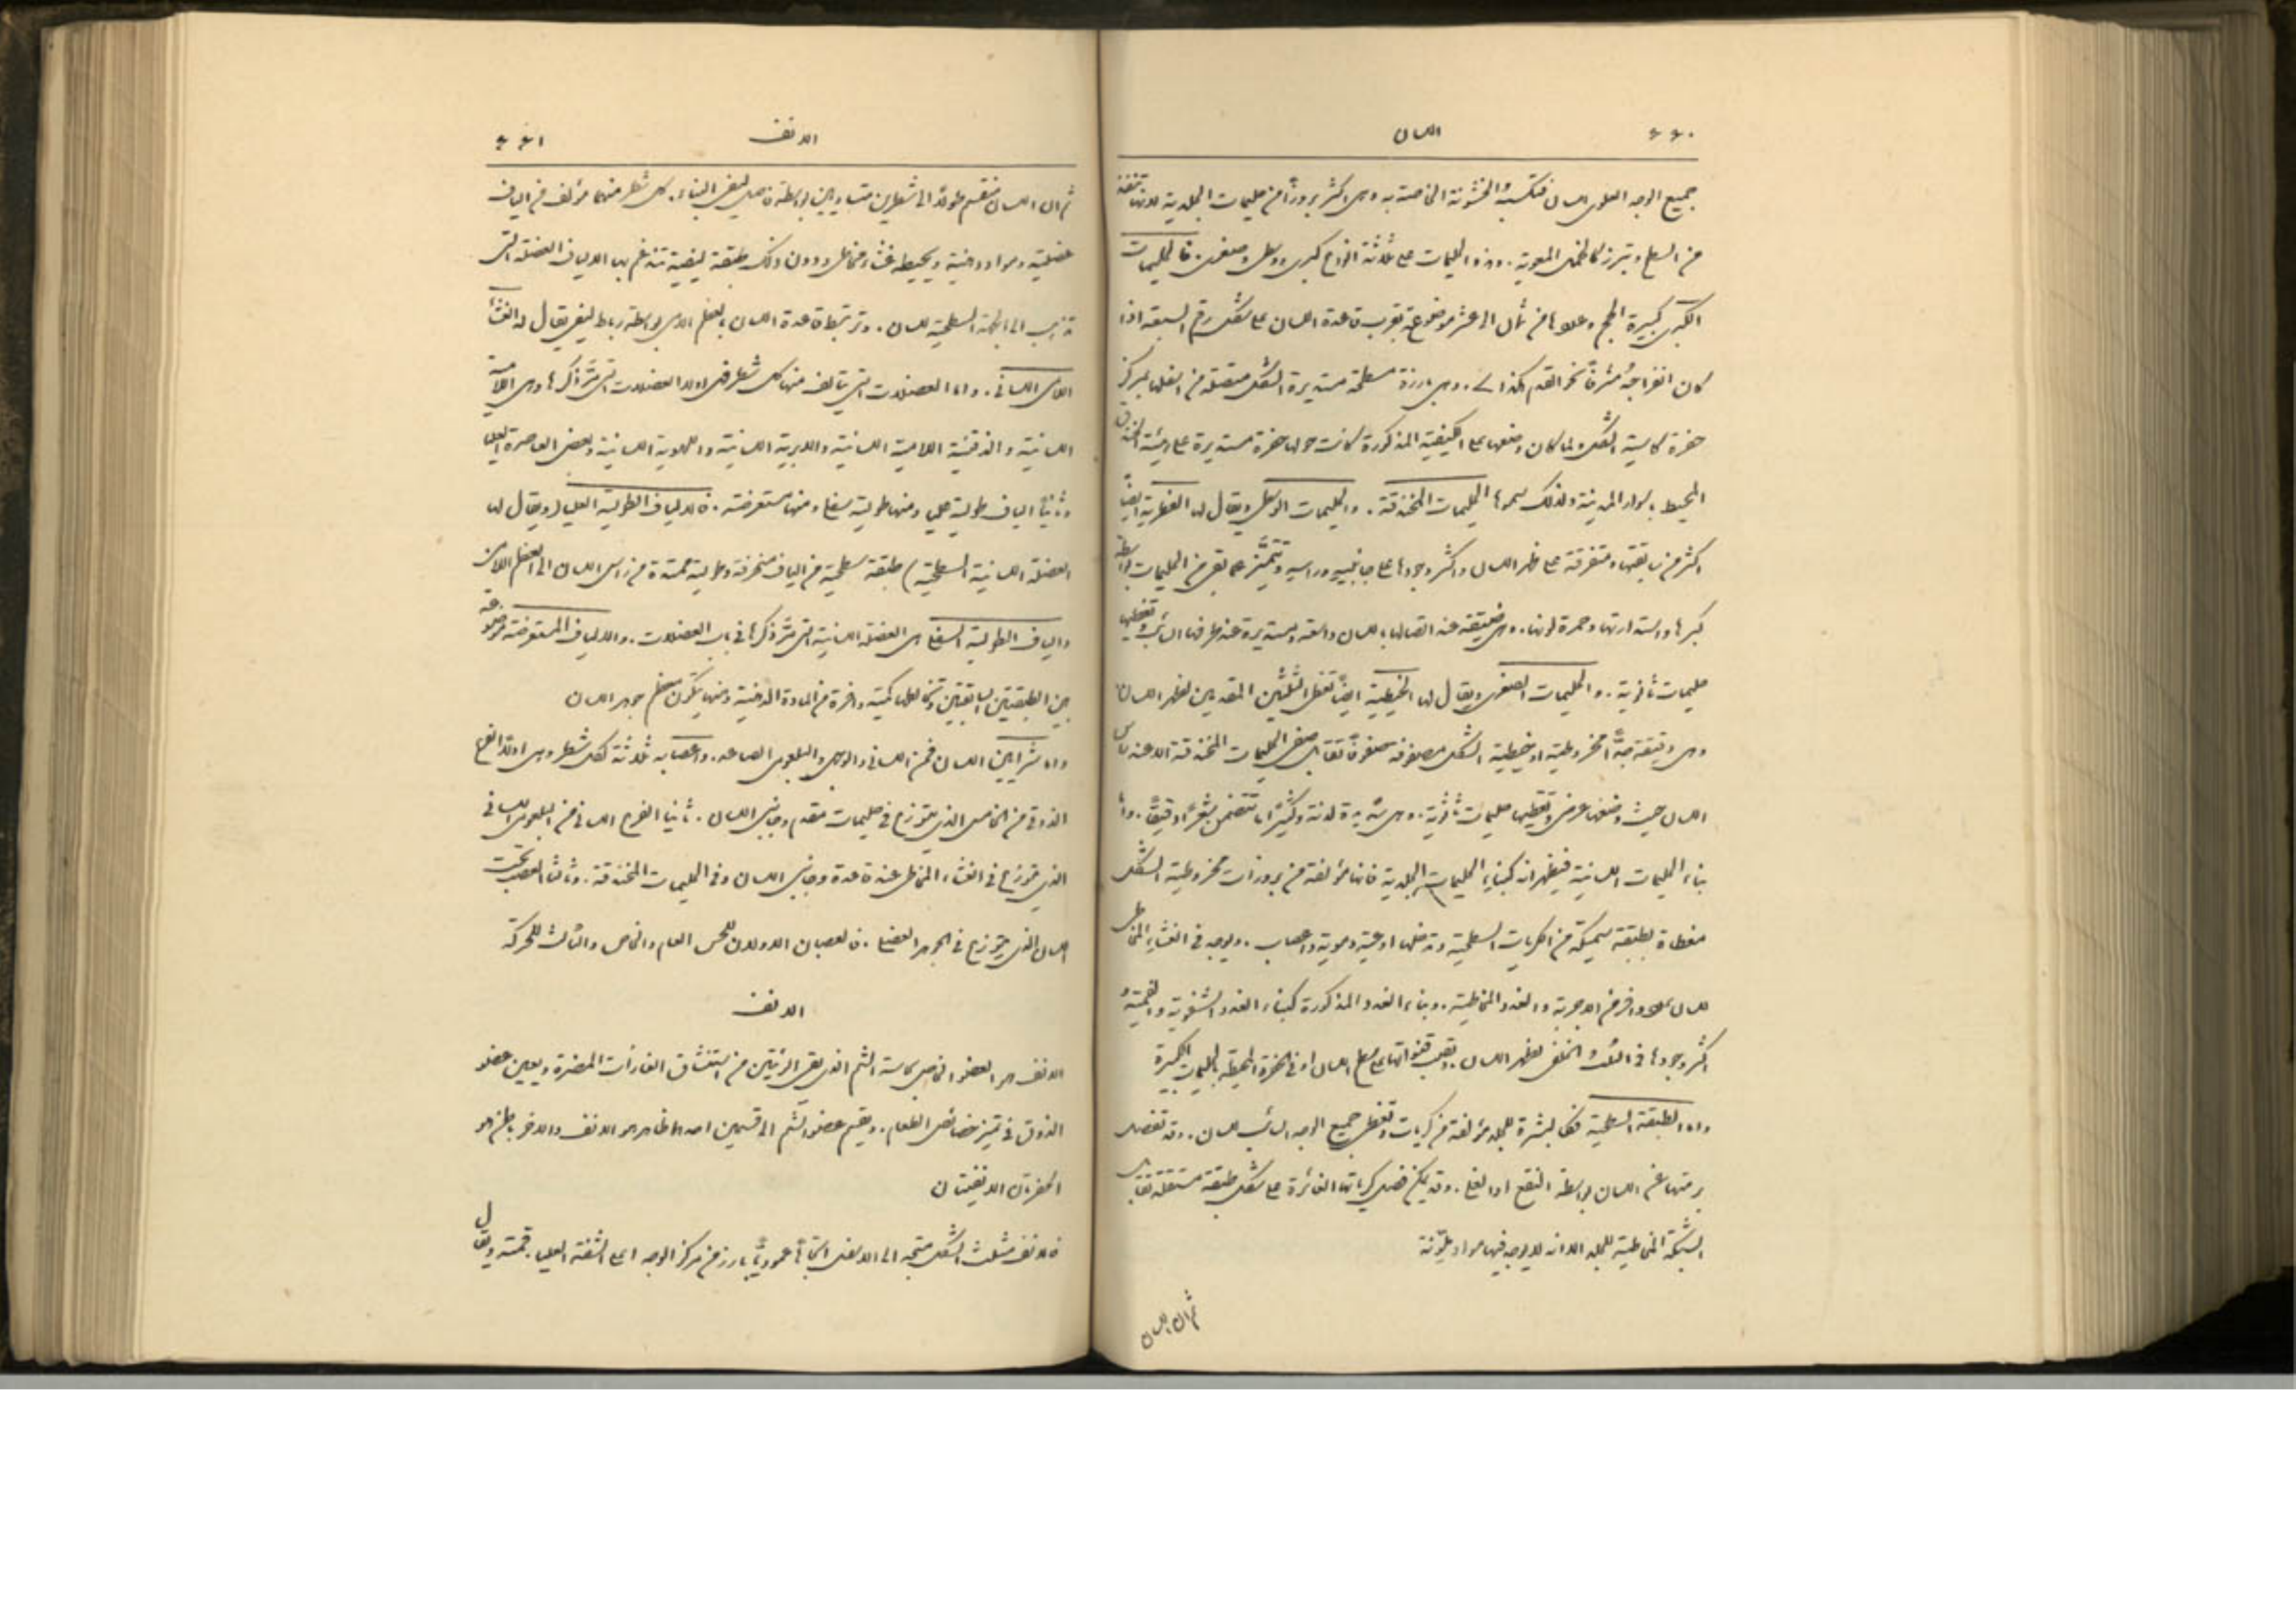 ٤٤٠
اللسان
جميع الوجه العلوي للسان فتكسبهُ الخشونة الخاصة به وهي اكثر بروزاً من حليمات الجلدية لانها
من السطح وتبرز كالخمل المعوية. وهذه الحليمات على ثلاثة انواع كبرى ووسطى وصغرى. فالحليمات
الكبرى كبيرة الحجم وعددها من ثمان الى عشر موضوعة بقرب قاعدة اللسان على شكل رقم السبعة اذا
كان انفراجهُ مشرفاً نحو القدم هكذا ٧. وهي بارزة مسطحة مستديرة الشكل متصلة من اسفلها بمركز
حفرة كاسية الشكل ولما كان وضعها على الكيفية المذكورة كانت حولها حفرة مستديرة على هيئة الخندق
المحيط باسوار المدينة ولذلك سموها الحليمات المخندقة. والحليمات الوسطى ويقال لها الفطرية ايضاً
اكثر من سابقتها ومتفرقة على ظهر اللسان واكثر وجودها على جانبيهِ وراسهِ وتتميَّز عما بقي من الحليمات بواسطة
كبرها واستدارتها وحمرة لونها. وهي ضيقة عند اتصالها باللسان واسعة ومستديرة عند طرفها السائب وتغطيها
حليمات ثانوية. والحليمات الصغرى ويقال لها الخيطية ايضاً تغطي الثلثين المقدمين لظهر اللسان
وهي دقيقة جدًّا مخروطية او خيطية الشكل مصفوفة صفوفاً تقابل صفي الحليمات المخندقة الا عند راس
اللسان حيث وضعها عرضي وتغطيها حليمات ثانوية. وهي شديدة لدنة وكثيرًا ما تتضمن شعرًا دقيقًا. واما
بناء الحليمات اللسانية فيظهر انه كبناءِ الحليمات الجلدية فانها مؤلفة من بروزات مخروطية الشكل
مغطاة بطبقة سميكة من الكريات السطحية وتدخلها اوعية دموية واعصاب. ويوجد في الغشاءِ المخاطي
للسان عدد وافر من الاجربة والغدد المخاطية. وبناء الغدد المذكورة كبناء الغدد الشفوية والفمية و
اكثر وجودها في الثلث الخلفي لظهر اللسان. وتصب قنواتها على سطح اللسان او في الحفرة المحيطة بالحليمات الكبيرة
واما الطبقة السطحية فكالبشرة للجلد مؤلفة من كريات وتغطي جميع الوجه السائب للسان. وقد تنفصل
برمتها عن اللسان بواسطة النقع او الغلي. وقد يمكن فصل كرياتها الغائرة على شكل طبقة مستقلة تقابل
الشبكة المخاطية للجلد الا انه لا يوجد فيها مواد ملوّنة
ثم ان اللسان
الانف
٤٤١
ثم ان اللسان منقسم طولاً الى شطرين متساويين بواسطة فاصل ليفي البناء. كل شطر منهما مؤلف من الياف
عضلية ومواد دهنية ويحيطه غشاء مخاطي ودون ذلك طبقة ليفية تندغم بها الالياف العضلية التي
تذهب الى الجهة السطحية للسان. وترتبط قاعدة اللسان بالعظم اللامي بواسطة رباط ليفي يقال له الغشاء
اللامي اللساني. واما العضلات التي يتألف منها كل شطر فهي اولا العضلات التي مرَّ ذكرها وهي اللامية
اللسانية والذقنية اللامية اللسانية والابرية اللسانية واللهوية اللسانية وبعض العاصرة العليا
وثانياً الياف طولية عليا ومنها طولية سفلى ومنها مستعرضة. فالالياف الطولية العليا (ويقال لها
العضلة اللسانية السطحية) طبقة سطحية من الياف منحرفة وطولية ممتدة من راس اللسان الى العظم اللامي
والياف الطولية السفلى هي العضلة اللسانية التي مرَّ ذكرها في باب العضلات. والالياف المستعرضة موضوعة
بين الطبقتين السابقتين وتتخللها كمية وافرة من المادة الدهنية ومنها يتكون معظم جوهر اللسان
واما شرايين اللسان فمن اللساني والوجهي والبلعومي الصاعد. واعصابه ثلاثة لكل شطر وهي اولا الفرع
الذوقي من الخامس الذي يتوزع في حليمات مقدم وجانبي اللسان. ثانيا الفرع اللساني من البلعومي اللساني
الذي يتوزع في الغشاء المخاطي عند قاعدة وجانبي اللسان وفي الحليمات المخندقة. وثالثا العصب تحت
اللسان الذي يتوزع في الجوهر العضلي. فالعصبان الاولان للحس العام والخاص والثالث للحركة
الانف
الانف هو العضو الخاص بحاسة الشم الذي يقي الرئتين من استنشاق الغازات المضرة ويعين عضو
الذوق في تمييز خصائص الطعام. ويقسم عضو الشم الى قسمين احدهما ظاهر هو الانف والاخر باطن هو
الحفرتان الانفيتان
فالانف مثلث الشكل متجه الى الاسفل اتجاهاً عموديًّا بارز من مركز الوجه اعلى الشفة العليا. قمته ويقال